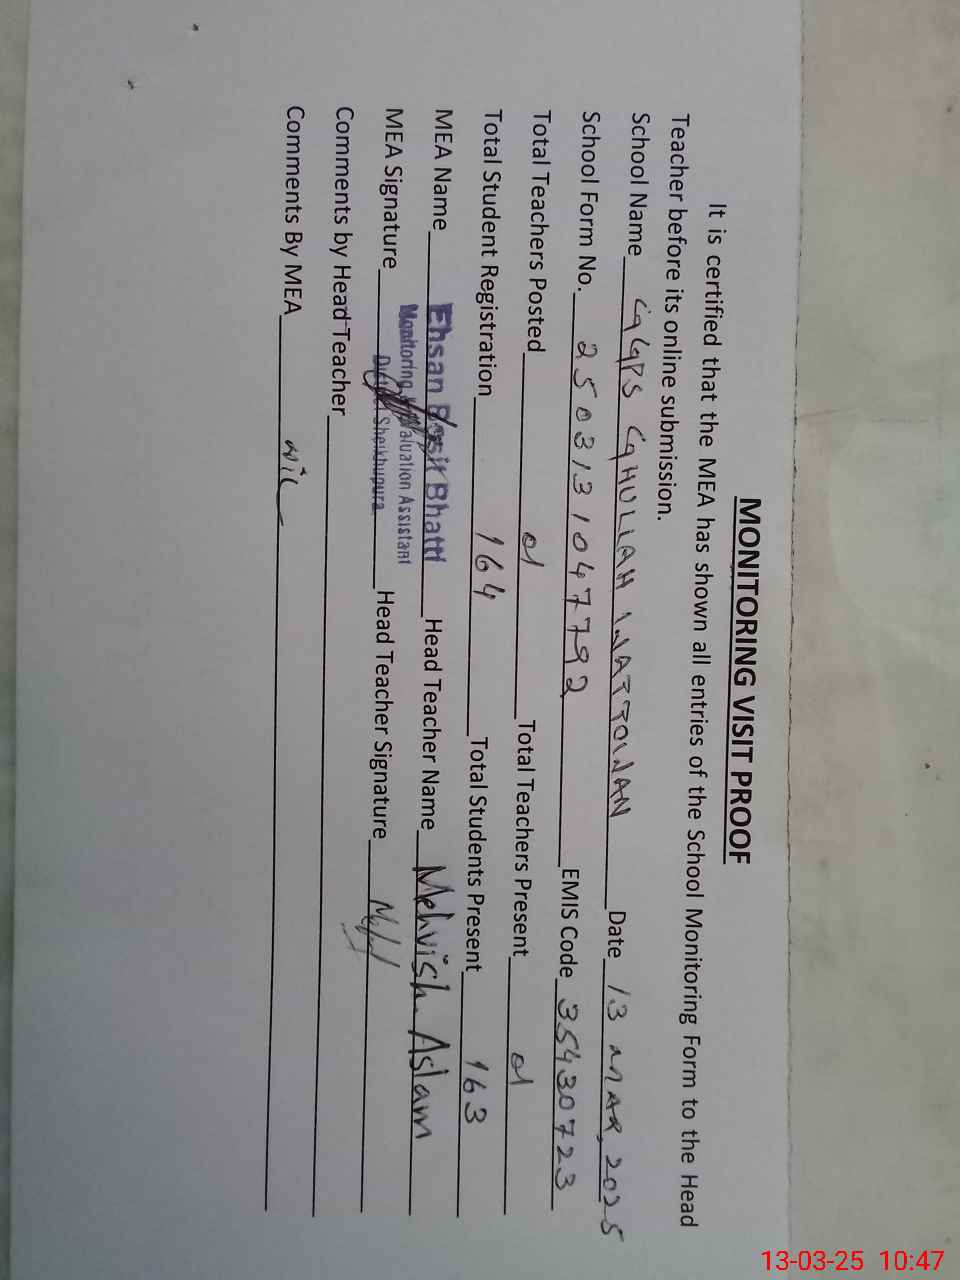 MONITORING VISIT PROOF
It is certified that the MEA has shown all entries of the School Monitoring Form to the Head
Teacher before its online submission.
School Name GGPS GHULLAH WATTOWAN Date 13 MAR, 2025
School Form No. 250313104792 EMIS Code 35430723
Total Teachers Posted 01 Total Teachers Present 01
Total Student Registration 164 Total Students Present 163
MEA Name Ehsan Basir Bhatti Head Teacher Name Mehvish Aslam
Monitoring Evaluation Assistant
MEA Signature District Sheikhupura Head Teacher Signature
Comments by Head Teacher
Comments By MEA NIL
13-03-25 10:47